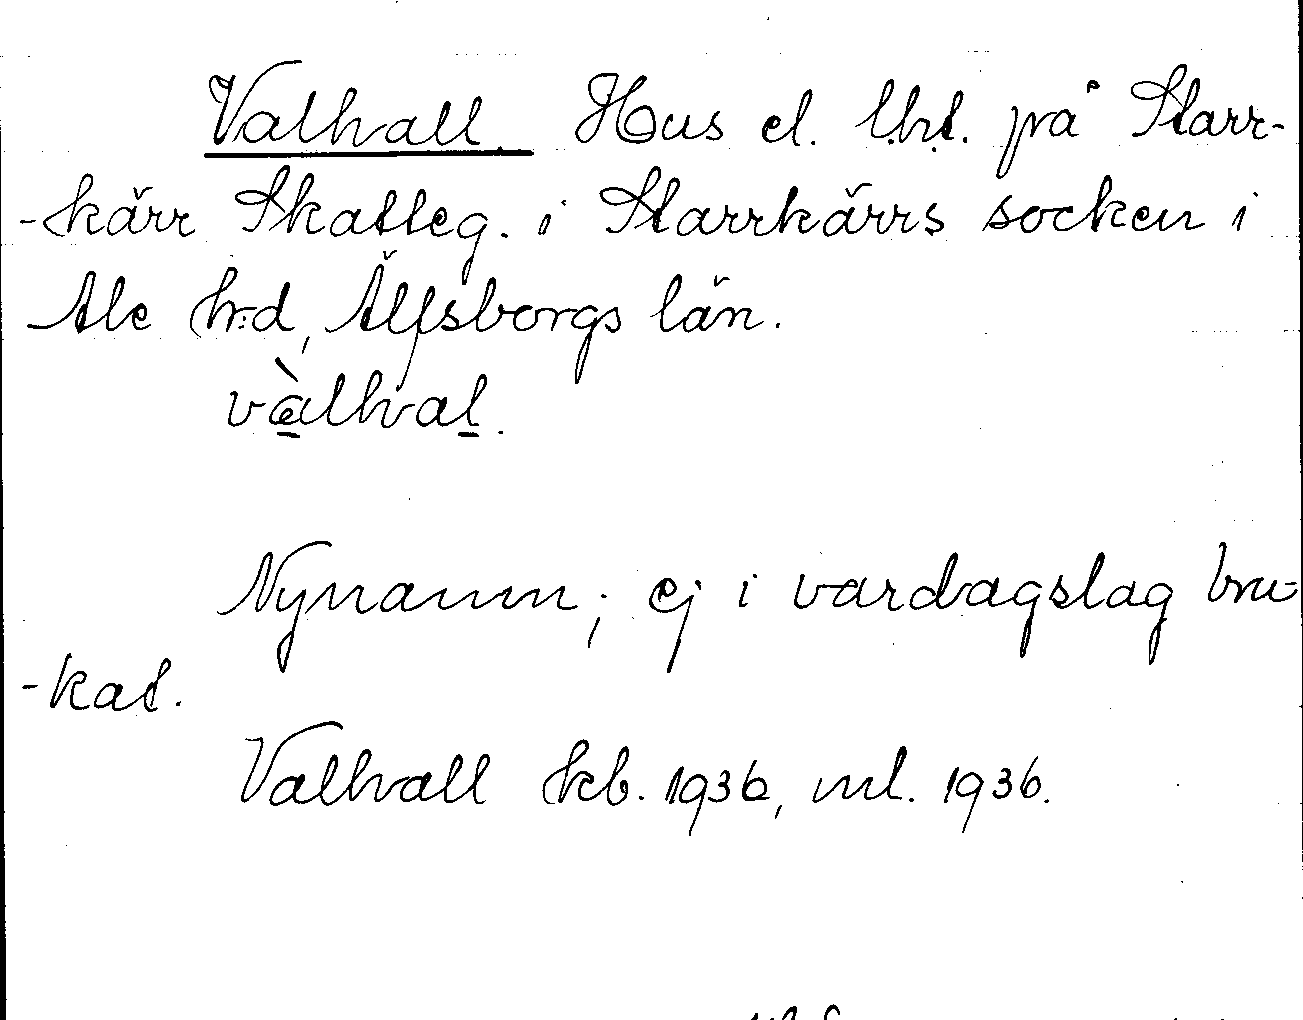 Valhall. Hus el. lht. på Starr-
-kärr Skatteg. i Starrkärrs socken i
Ale hrd, Älfsborgs län.
vàlhval.
Nynamn; ej i vardagslag bru-
-kat.
Valhall kb. 1936, ml. 1936.